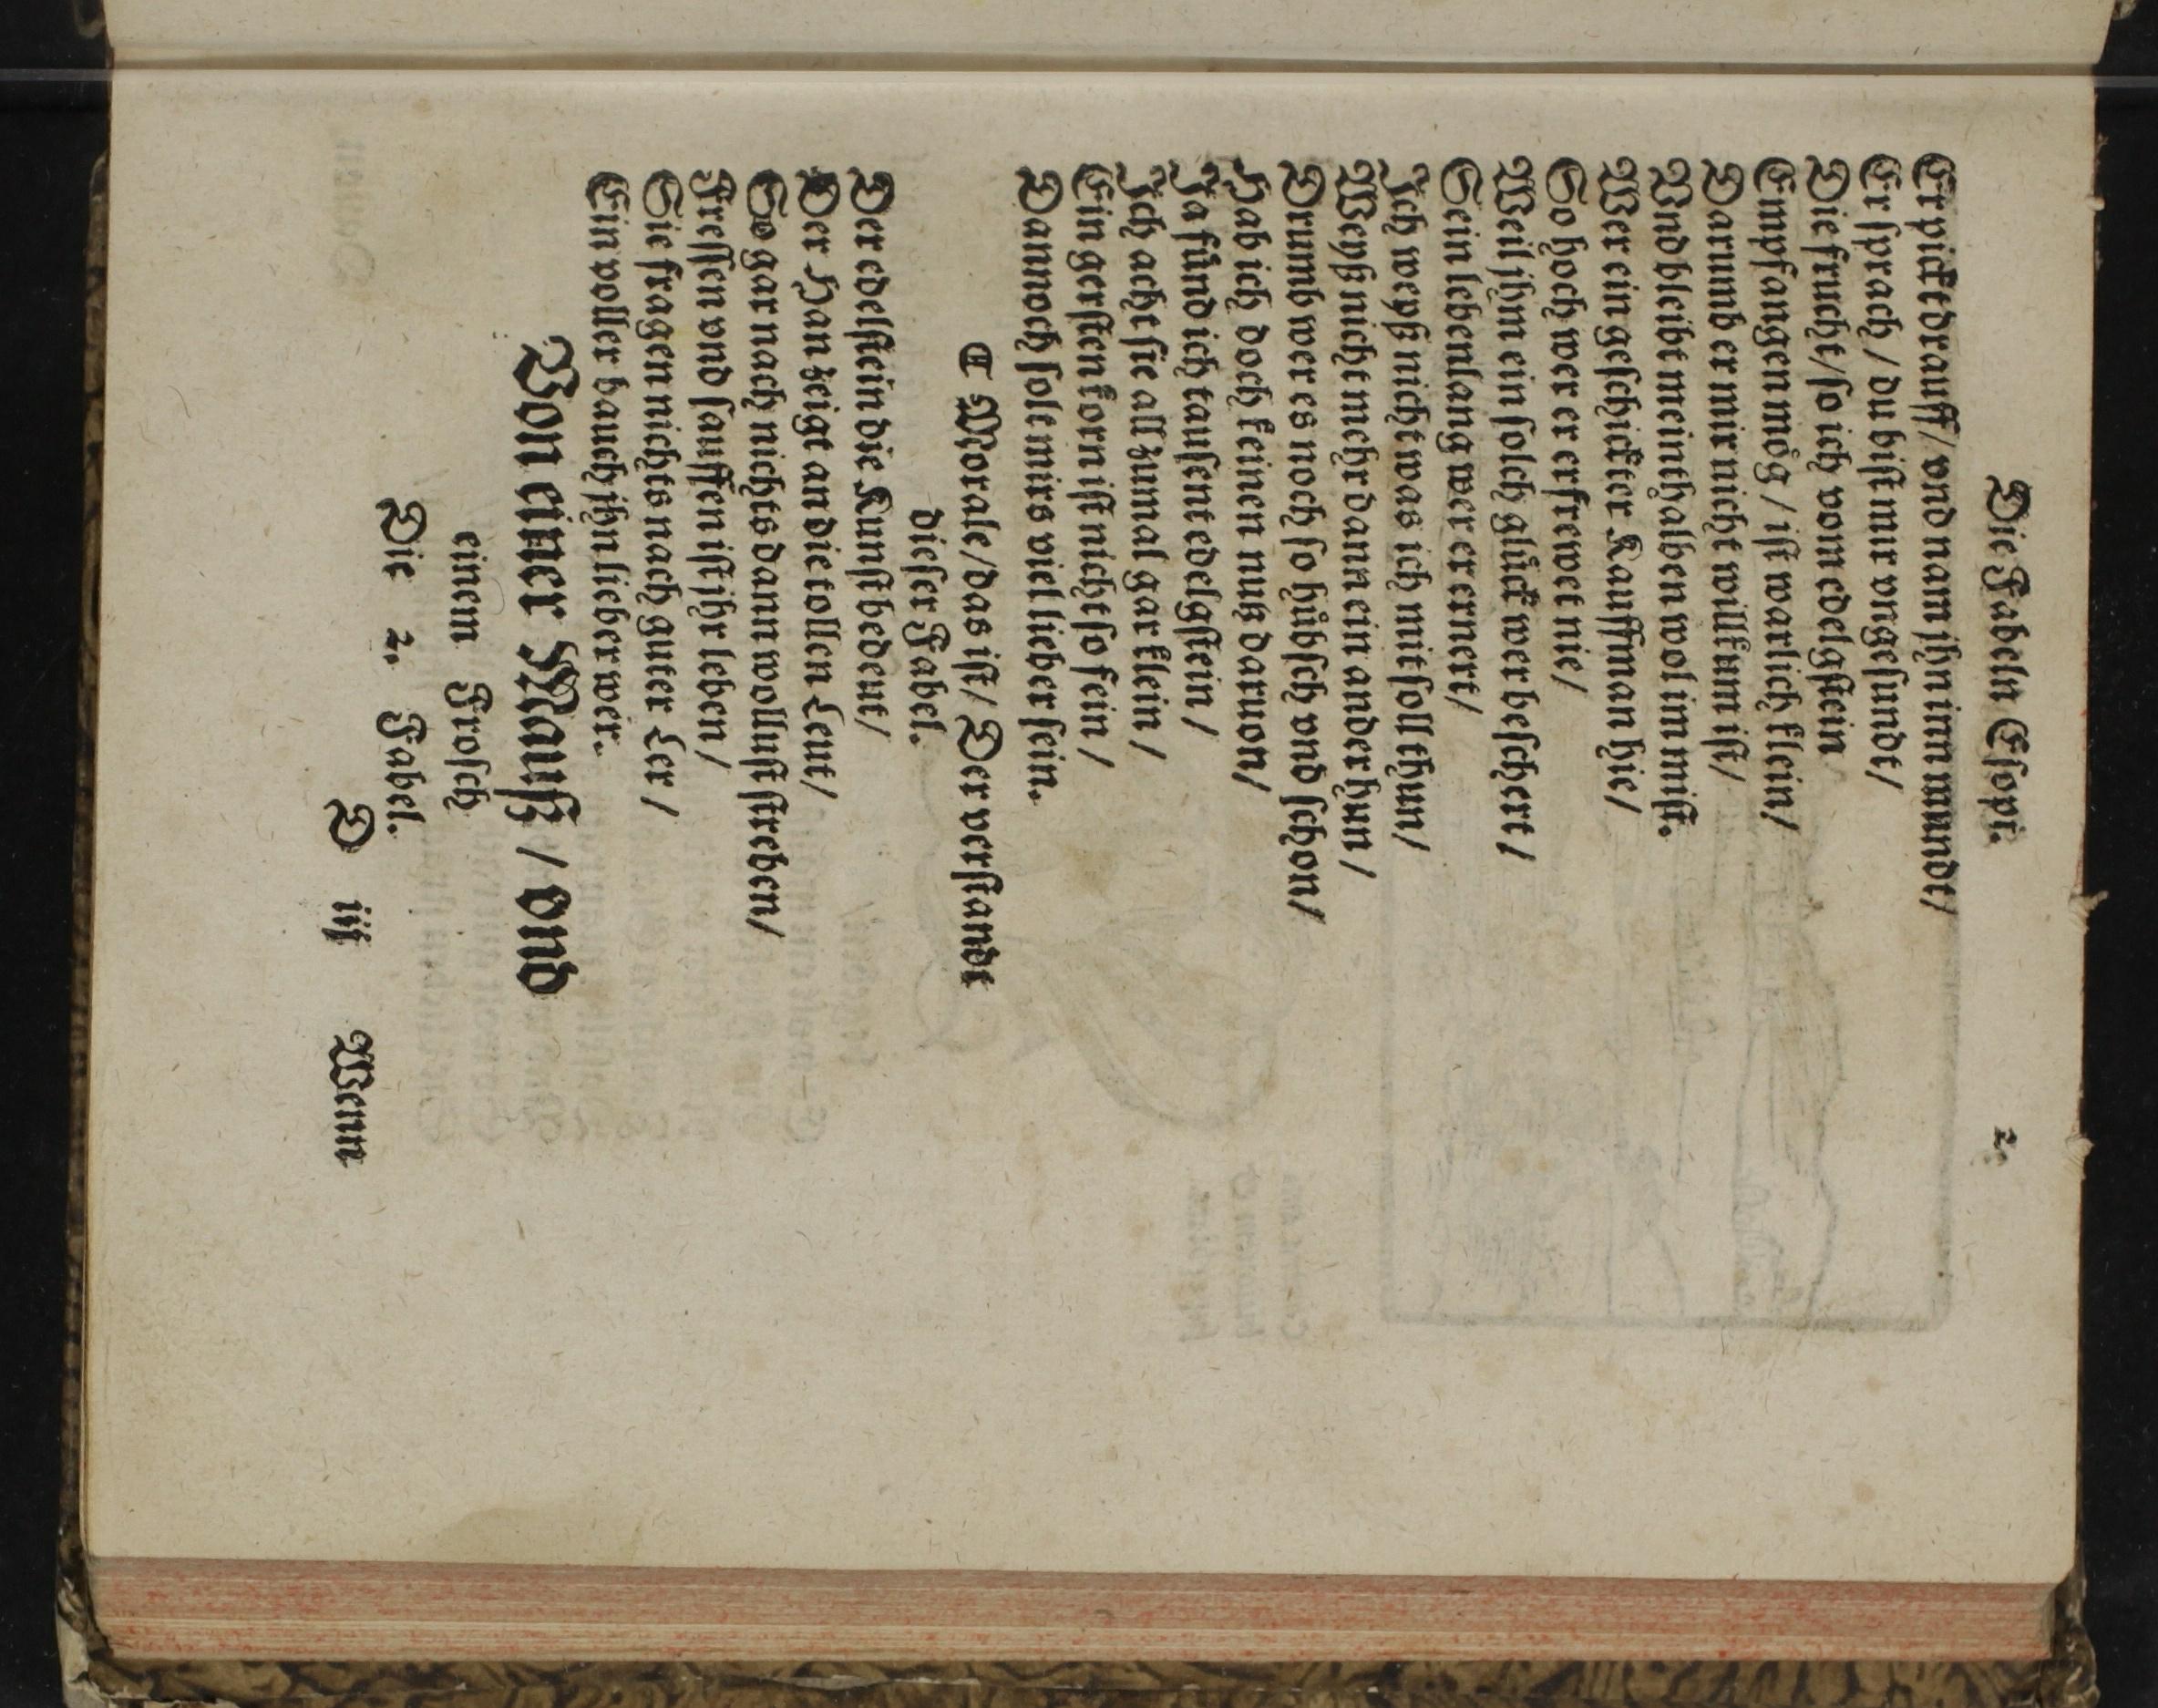 Die Fabeln Esopi. 2.
Er pickt drauff / vnd nam jhn inn mundt /
Er sprach / du bist mir vngesundt /
Die frucht / so ich vom edelgstein
Empfangen mög / ist warlich klein /
Darumb er mir nicht willkumm ist /
Vnd bleibt meinthalben wol im mist.
Wer ein geschickter Kauffman hie /
So hoch wer er erfrewet nie /
Weil jhm ein solch glück wer beschert /
Sein leben lang wer er ernert /
Ich weyß nicht was ich mit soll thun /
Weyß nicht mehr dann ein ander hun /
Drumb wer es noch so hübsch vnd schon /
Hab ich doch keinen nutz daruon /
Ja fünd ich tausent edelgstein /
Ich acht sie all zumal gar klein /
Ein gersten korn ist nicht so fein /
Dannoch sol em mirs viel lieber sein.
❡ Morale / das ist / Der verstandt
dieser Fabel.
Der edelstein die Kunst bedeut /
Der Han zeigt an die tollen Leut /
So gar nach nichts dann wollust streben /
Fressen vnd sauffen ist jhr leben /
Sie fragen nichts nach guter Ler /
Ein voller bauch jhn lieber wer.
Von einer Mauß / vnd
einem Frosch
Die 2. Fabel.
D iij Wenn